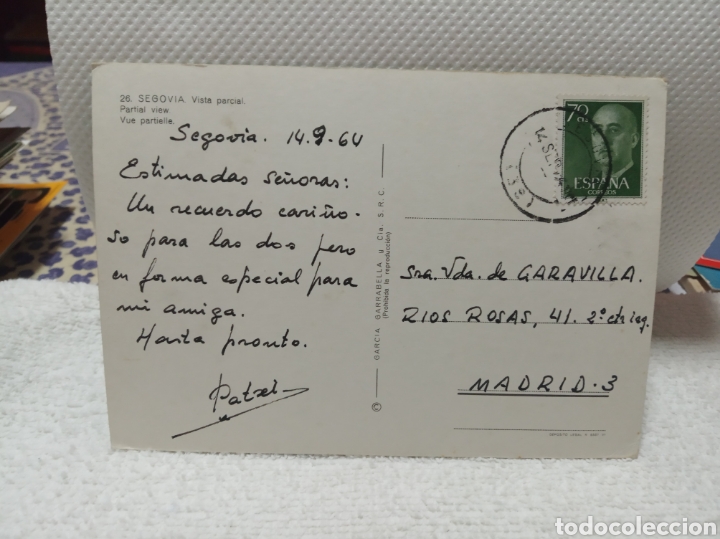 26. SEGOVIA. Vista parcial.
Partial view.
Vue partielle.
Segovia. 14.9.64
Estimadas Señoras:
Un recuerdo cariño-
so para las dos pero
en forma especial para
mi amiga.
Hasta pronto.
GARCIA GARRABELLA y Cía. S.R.C.
(Prohibida la reproducción)
©
70
ESPAÑA
CORREOS
Sra. Vda. de GARAVILLA.
RIOS ROSAS, 41. 2º ctr izq.
MADRID-3
todocoleccion